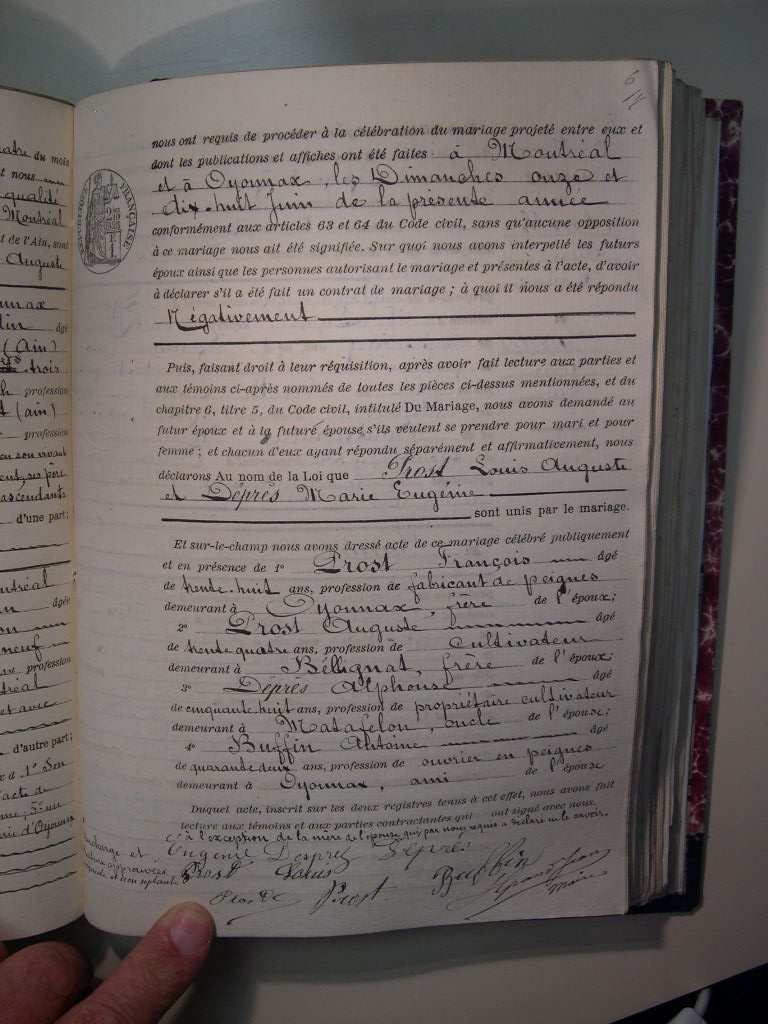 atre du mois
et nous
qualité
Montréal
t de l'Ain, sont
Auguste
onnax
tin âgé
(Ain)
trois
profession
t (ain)
profession
ascendants
d'une part;
ontréal
âgée
on
neuf
profession
tréal
et avec
d'autre part;
1° Son
'acte de
rie d'Oyonnax
6
14
RÉPUBLIQUE FRANÇAISE
nous ont requis de procéder à la célébration du mariage projeté entre eux et
dont les publications et affiches ont été faites à Montréal
et à Oyonnax, les Dimanches onze et
dix-huit Juin de la présente année
conformément aux articles 63 et 64 du Code civil, sans qu'aucune opposition
à ce mariage nous ait été signifiée. Sur quoi nous avons interpellé les futurs
époux ainsi que les personnes autorisant le mariage et présentes à l'acte, d'avoir
à déclarer s'il a été fait un contrat de mariage ; à quoi il nous a été répondu
Négativement
Puis, faisant droit à leur réquisition, après avoir fait lecture aux parties et
aux témoins ci-après nommés de toutes les pièces ci-dessus mentionnées, et du
chapitre 6, titre 5, du Code civil, intitulé Du Mariage, nous avons demandé au
futur époux et à la future épouse s'ils veulent se prendre pour mari et pour
femme ; et chacun d'eux ayant répondu séparément et affirmativement, nous
déclarons Au nom de la Loi que Prost Louis Auguste
et Déprés Marie Eugénie
sont unis par le mariage.
Et sur-le-champ nous avons dressé acte de ce mariage célébré publiquement
et en présence de 1° Prost François âgé
de trente-huit ans, profession de fabricant de peignes
demeurant à Oyonnax, frère de l'époux;
2° Prost Auguste âgé
de trente quatre ans, profession de Cultivateur
demeurant à Béllignat, frère de l'époux;
3° Déprés Alphonse âgé
de cinquante huit ans, profession de propriétaire cultivateur
demeurant à Matafelon, oncle de l'épouse;
4° Buffin Antoine âgé
de quarante deux ans, profession de ouvrier en peignes
demeurant à Oyonnax, ami de l'épouse
Duquel acte, inscrit sur les deux registres tenus à cet effet, nous avons fait
lecture aux témoins et aux parties contractantes qui ont signé avec nous
à l'exception de la mère de l'épouse qui, par nous requise a déclaré ne le savoir.
Eugénie Desprez Déprés
Prost Louis
Prost Buffin
Maire